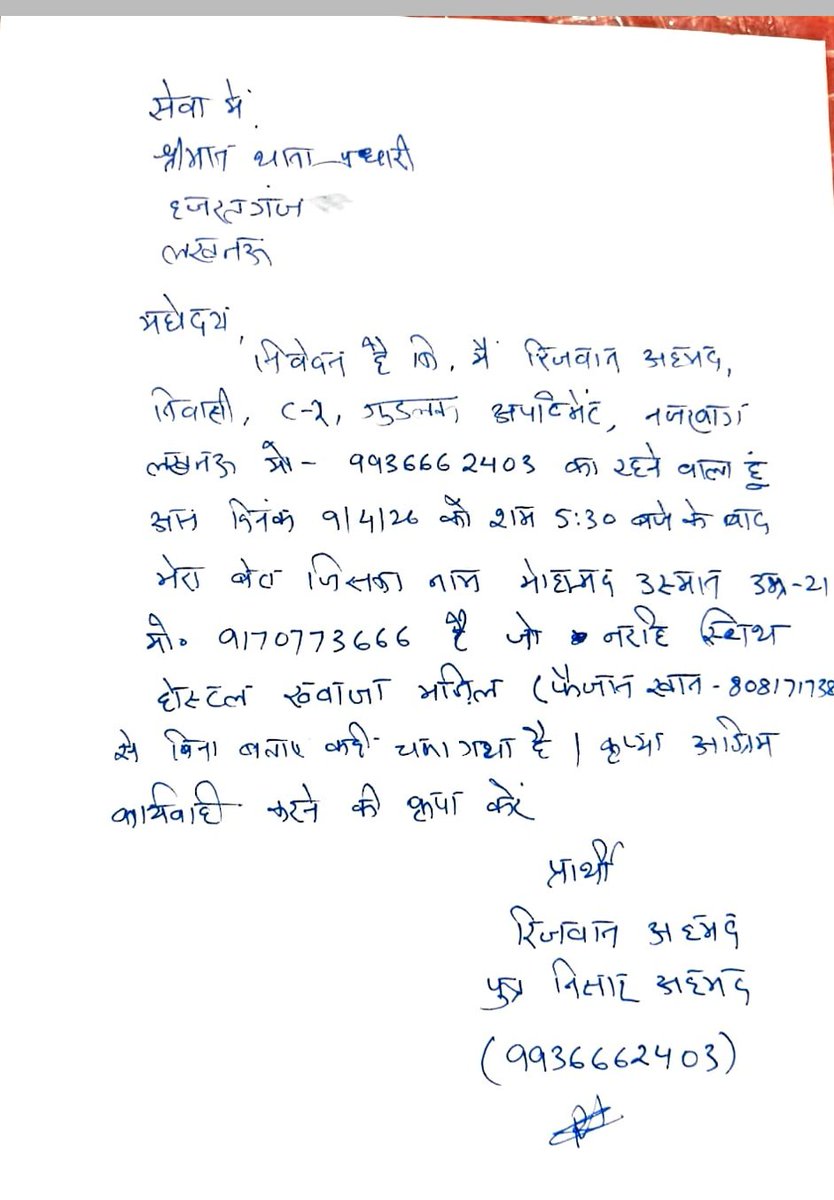 सेवा में,
श्रीमान थाना प्रभारी
हजरतगंज
लखनऊ
महोदय,
निवेदन है कि, मैं रिजवान अहमद,
निवासी, C-2, गुडलक अपार्टमेंट, नजरबाग
लखनऊ मो- 9936662403 का रहने वाला हूं
आज दिनांक 9/4/26 को शाम 5:30 बजे के बाद
मेरा बेटा जिसका नाम मोहम्मद उस्मान उम्र-21
मो० 9170773666 है जो नरहि स्थिथ
होस्टल ख्वाजा मंजिल (फैजान खान - 808171738
से बिना बताए कही चला गया है। कृप्या अग्रिम
कार्यवाही करने की कृपा करें
प्रार्थी
रिजवान अहमद
पुत्र निसार अहमद
(9936662403)